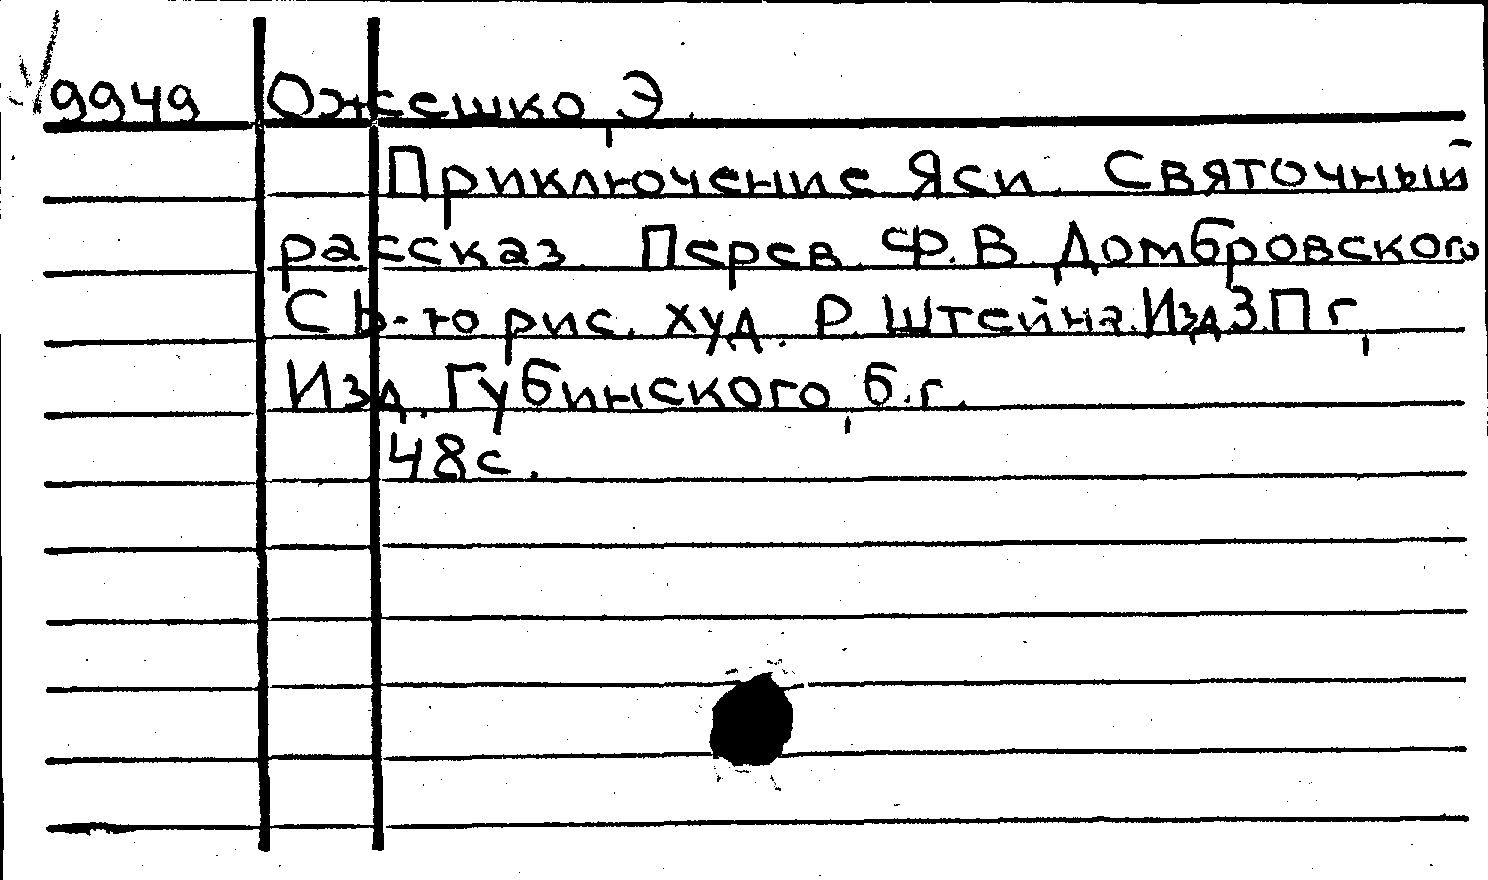 9949 Ожешко, Э.
Приключение Яси. Святочный
рассказ. Перев. Ф. В. Домбровского
С 10 рис. худ. Р. Штейна. Изд. 3. П г,
Изд. Губинского, б. г.
48 с.